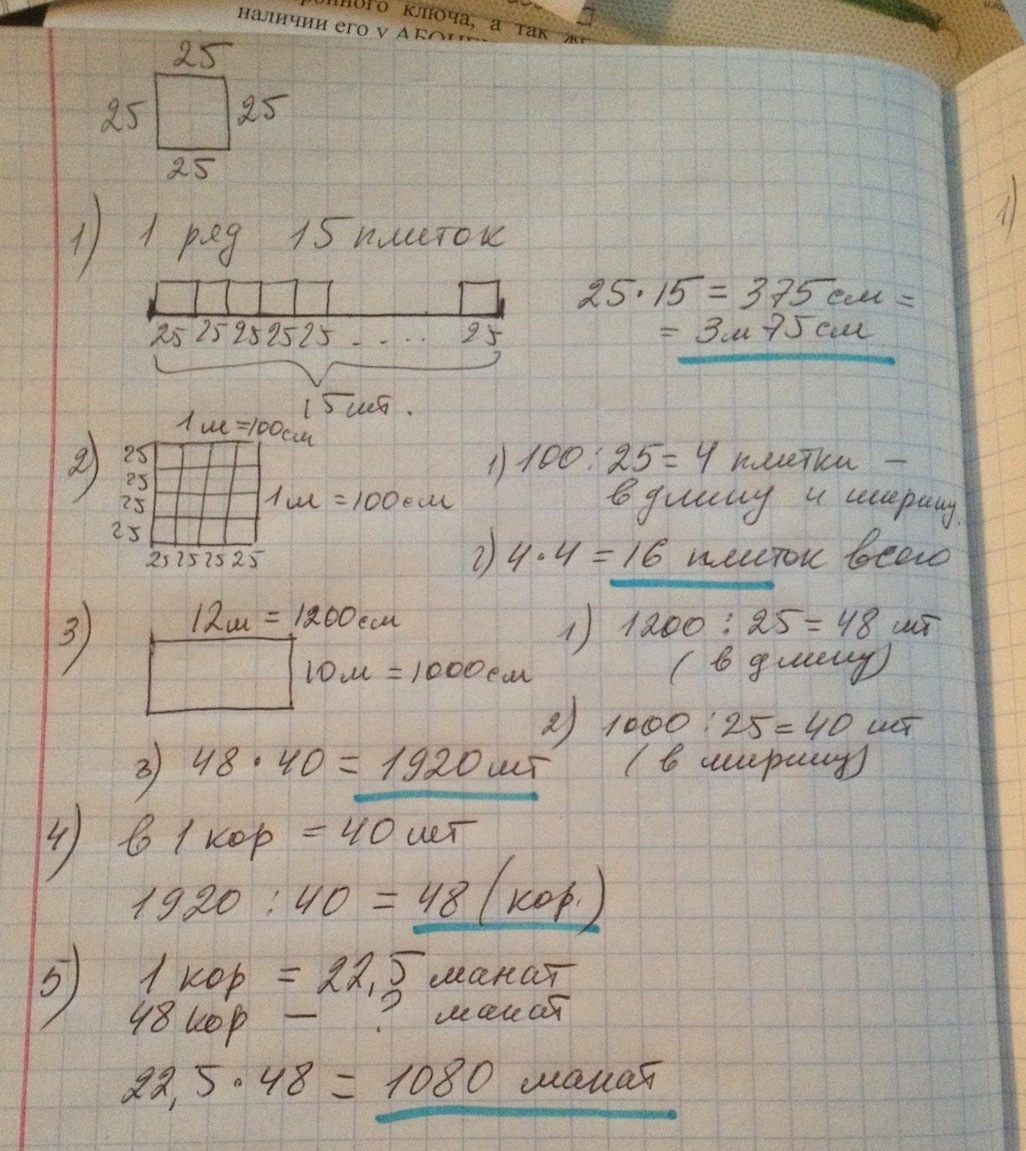 ронного ключа, а так же
наличии его у АБОНЕ
25
25 25
25
1) 1 ряд 15 плиток
25 25 25 25 25 . . . . . 25
15 шт.
25 · 15 = 375 см =
= 3м 75 см
2) 1м = 100см
25
25
25
25
1м = 100см
25 25 25 25
1) 100 : 25 = 4 плитки –
в длину и ширину.
2) 4 · 4 = 16 плиток всего
3) 12м = 1200см
10м = 1000см
1) 1200 : 25 = 48 шт
(в длину)
2) 1000 : 25 = 40 шт
(в ширину)
3) 48 · 40 = 1920 шт
4) в 1 кор = 40 шт
1920 : 40 = 48 (кор.)
5) 1 кор = 22,5 манат
48 кор – ? манат
22,5 · 48 = 1080 манат
1)